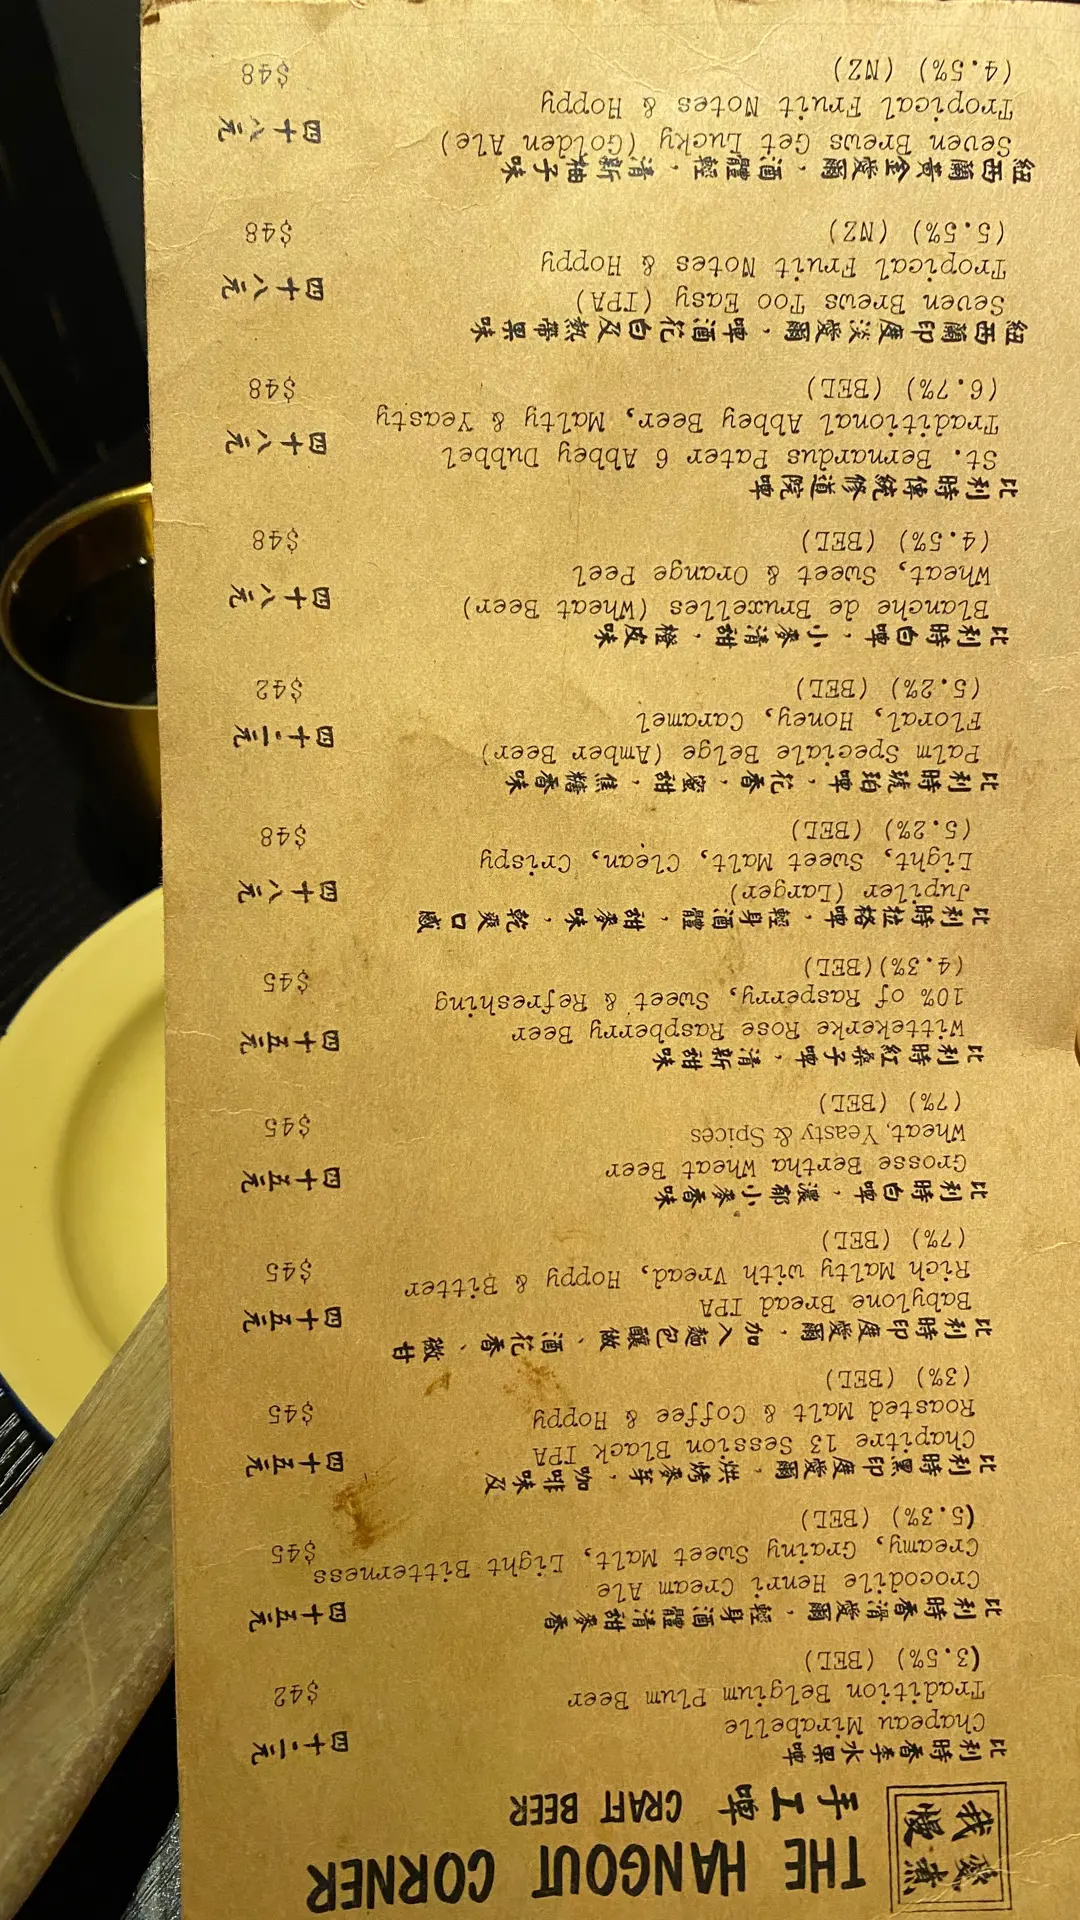 我愛
慢煮
THE HANGOUT CORNER
手工啤 CRAFT BEER
比利時春季水果啤 四十二元
Chapeau Mirabelle
Tradition Belgium Plum Beer $42
(3.5%) (BEL)
比利時香滑愛爾,輕身酒體清甜麥香 四十五元
Crocodile Henri Cream Ale
Creamy, Grainy Sweet Malt, Light Bitterness $45
(5.3%) (BEL)
比利時黑印度愛爾,烘烤麥芽,咖啡味及 四十五元
Chapitre 13 Session Black IPA
Roasted Malt & Coffee & Hoppy $45
(3%) (BEL)
比利時印度愛爾,加入麵包釀做、酒花香、微甘 四十五元
Babylone Bread IPA
Rich Malty with Vread, Hoppy & Bitter $45
(7%) (BEL)
比利時白啤,濃郁小麥香味 四十五元
Grosse Bertha Wheat Beer
Wheat, Yeasty & Spices $45
(7%) (BEL)
比利時紅桑子啤,清新甜味 四十五元
Wittekerke Rose Raspberry Beer
10% of Rasperry, Sweet & Refreshing $45
(4.3%)(BEL)
比利時拉格啤,輕身酒體,甜麥味,乾爽口感 四十八元
Jupiler (Larger)
Light, Sweet Malt, Clean, Crispy $48
(5.2%) (BEL)
比利時琥珀啤,花香,蜜甜,焦糖香味 四十二元
Palm Speciale Belge (Amber Beer)
Floral, Honey, Caramel $42
(5.2%) (BEL)
比利時白啤,小麥清甜,橙皮味 四十八元
Blanche de Bruxelles (Wheat Beer)
Wheat, Sweet & Orange Peel $48
(4.5%) (BEL)
比利時傳統修道院啤 四十八元
St. Bernardus Pater 6 Abbey Dubbel
Traditional Abbey Beer, Malty & Yeasty $48
(6.7%) (BEL)
紐西蘭印度淡愛爾,啤酒花及白熱帶果味 四十八元
Seven Brews Too Easy (IPA)
Tropical Fruit Notes & Hoppy $48
(5.5%) (NZ)
紐西蘭黃金愛爾,酒體輕,清新柚子味 四十八元
Seven Brews Get Lucky (Golden Ale)
Tropical Fruit Notes & Hoppy $48
(4.5%) (NZ)